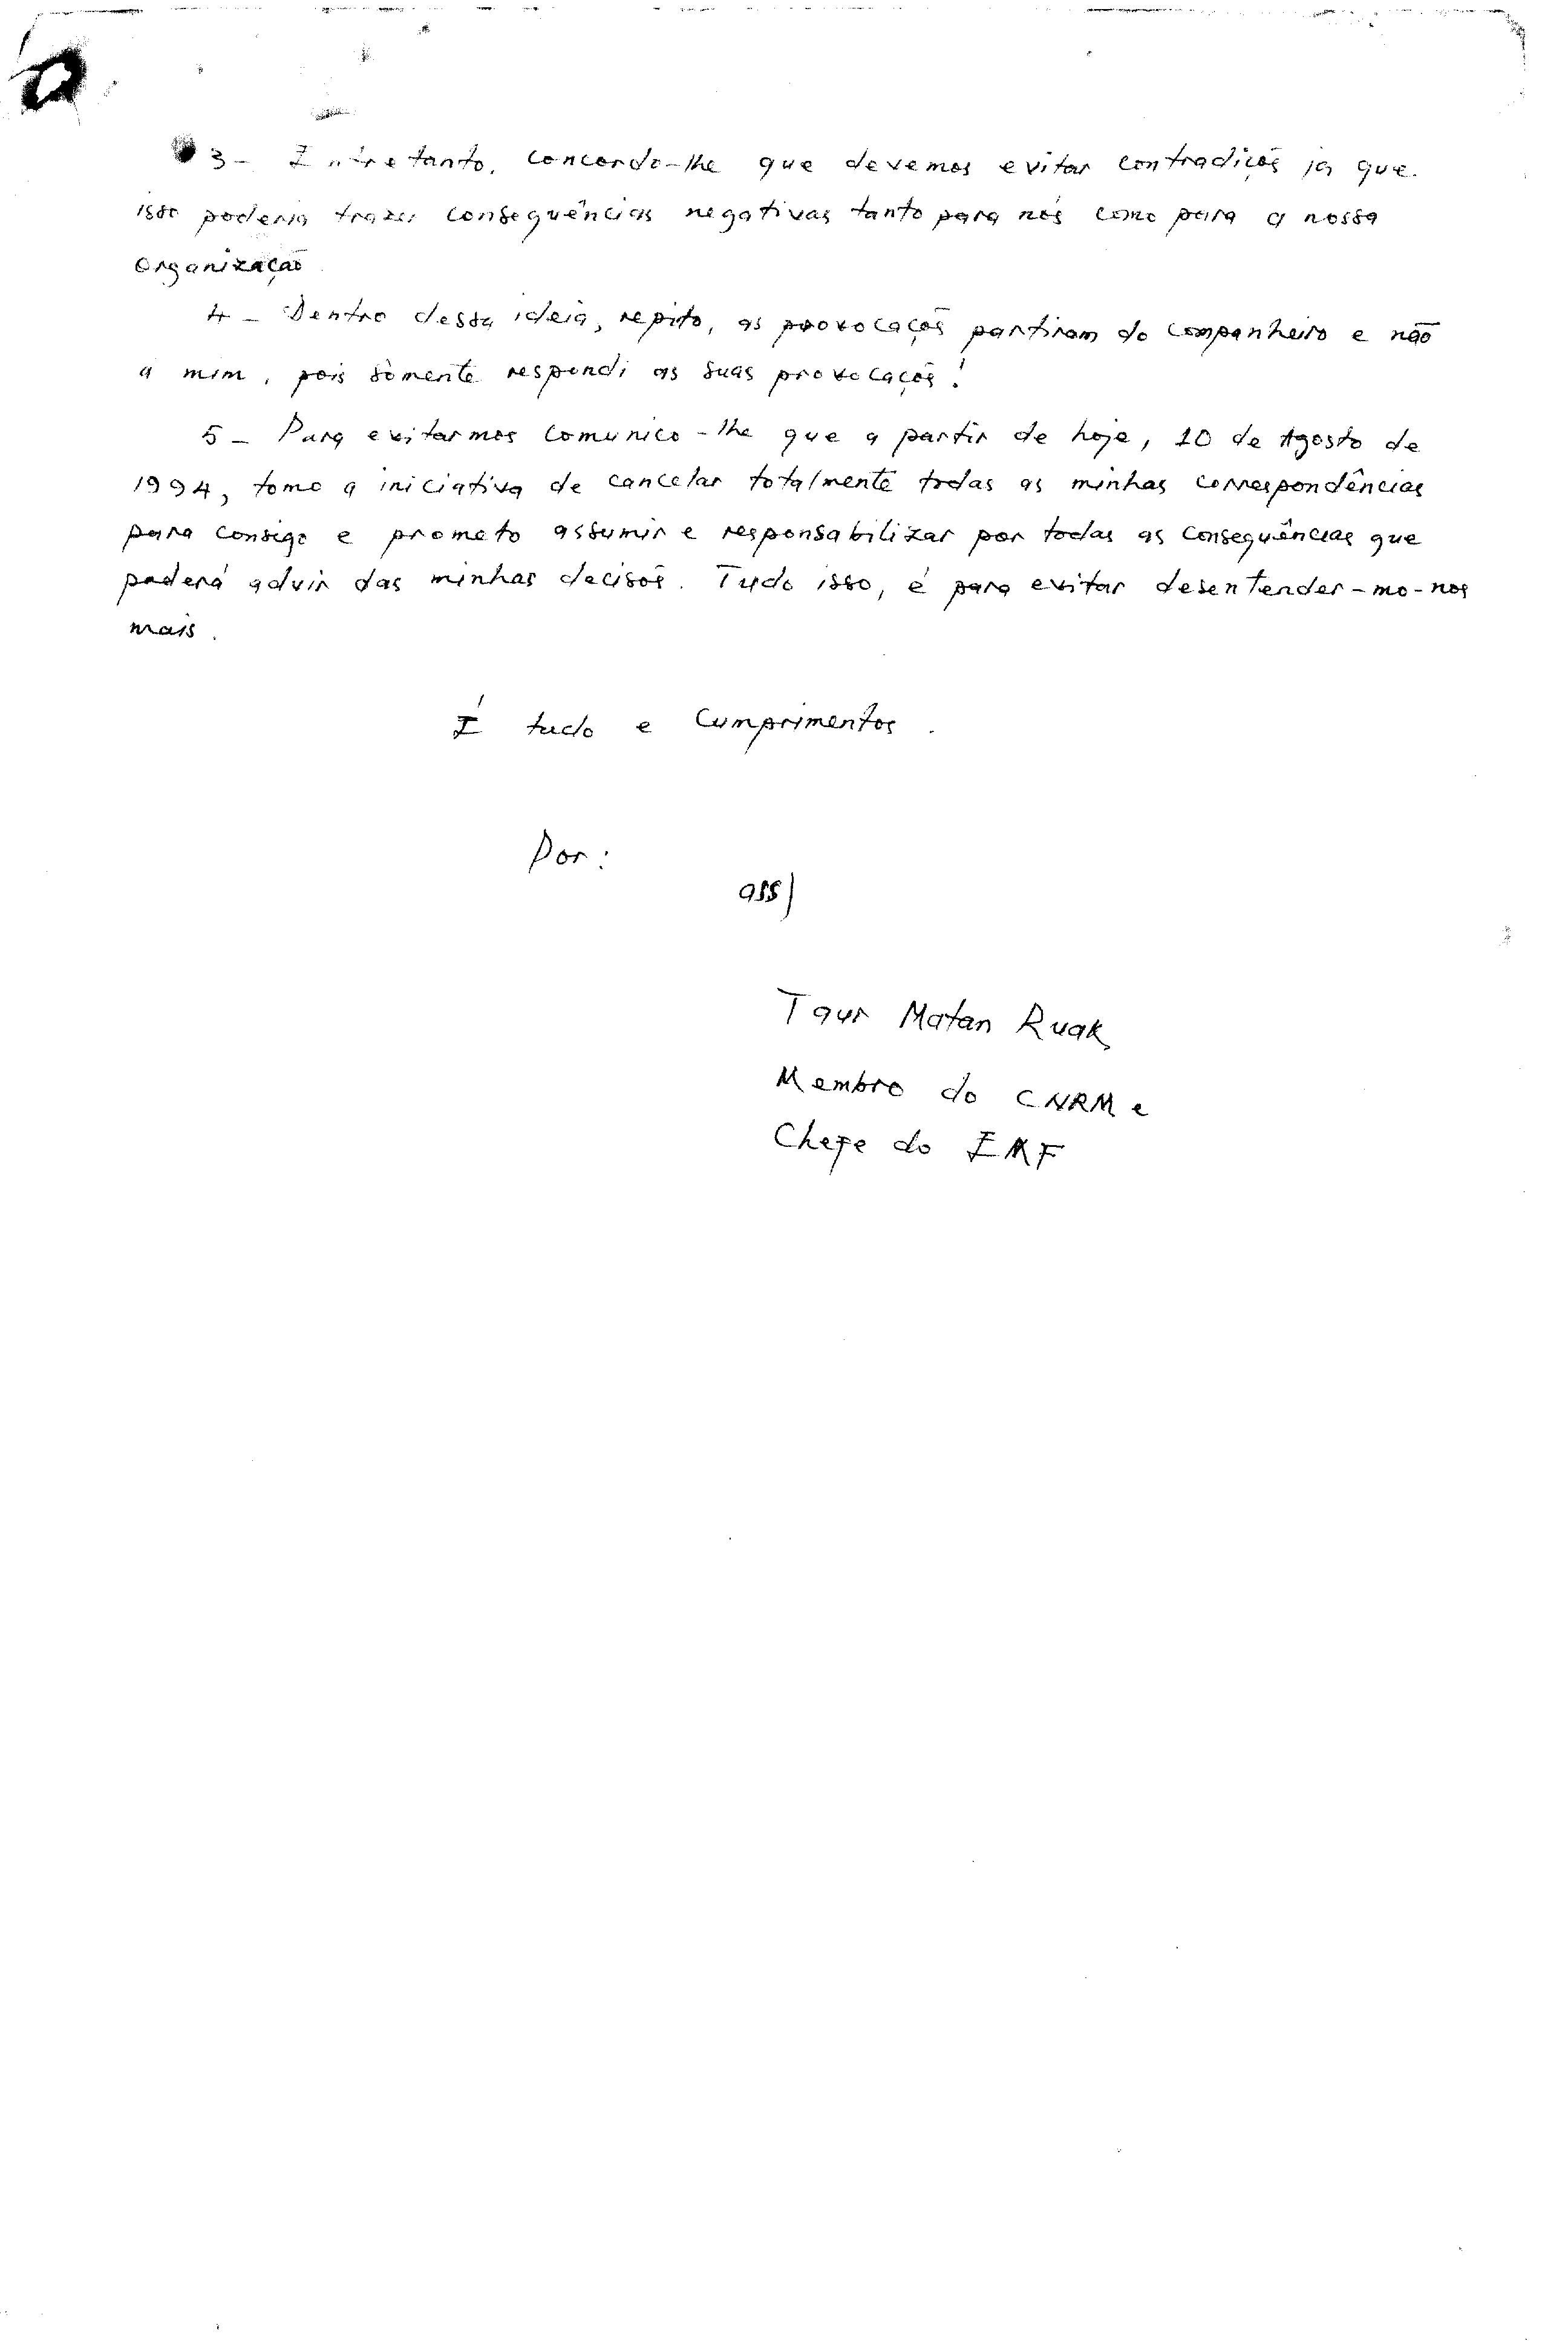 3 - Entretanto, concordo-lhe que devemos evitar contradicões já que
isso poderia trazer consequências negativas tanto para nós como para a nossa
Organização
4 - Dentro dessa ideia, repito, as provocaçõs partiram do Companheiro e não
a mim, pois sòmente respondi as suas provocaçõs!
5 - Para evitarmos comunico-lhe que a partir de hoje, 10 de Agosto de
1994, tomo a iniciativa de cancelar totalmente todas as minhas correspondências
para consigo e prometo assumir e responsabilizar por todas as consequências que
poderá advir das minhas decisõs. Tudo isso, é para evitar desentender-mo-nos
mais.
É tudo e Cumprimentos.
Por:
ass)
Taur Matan Ruak
Membro do CNRM e
Chefe do EMF